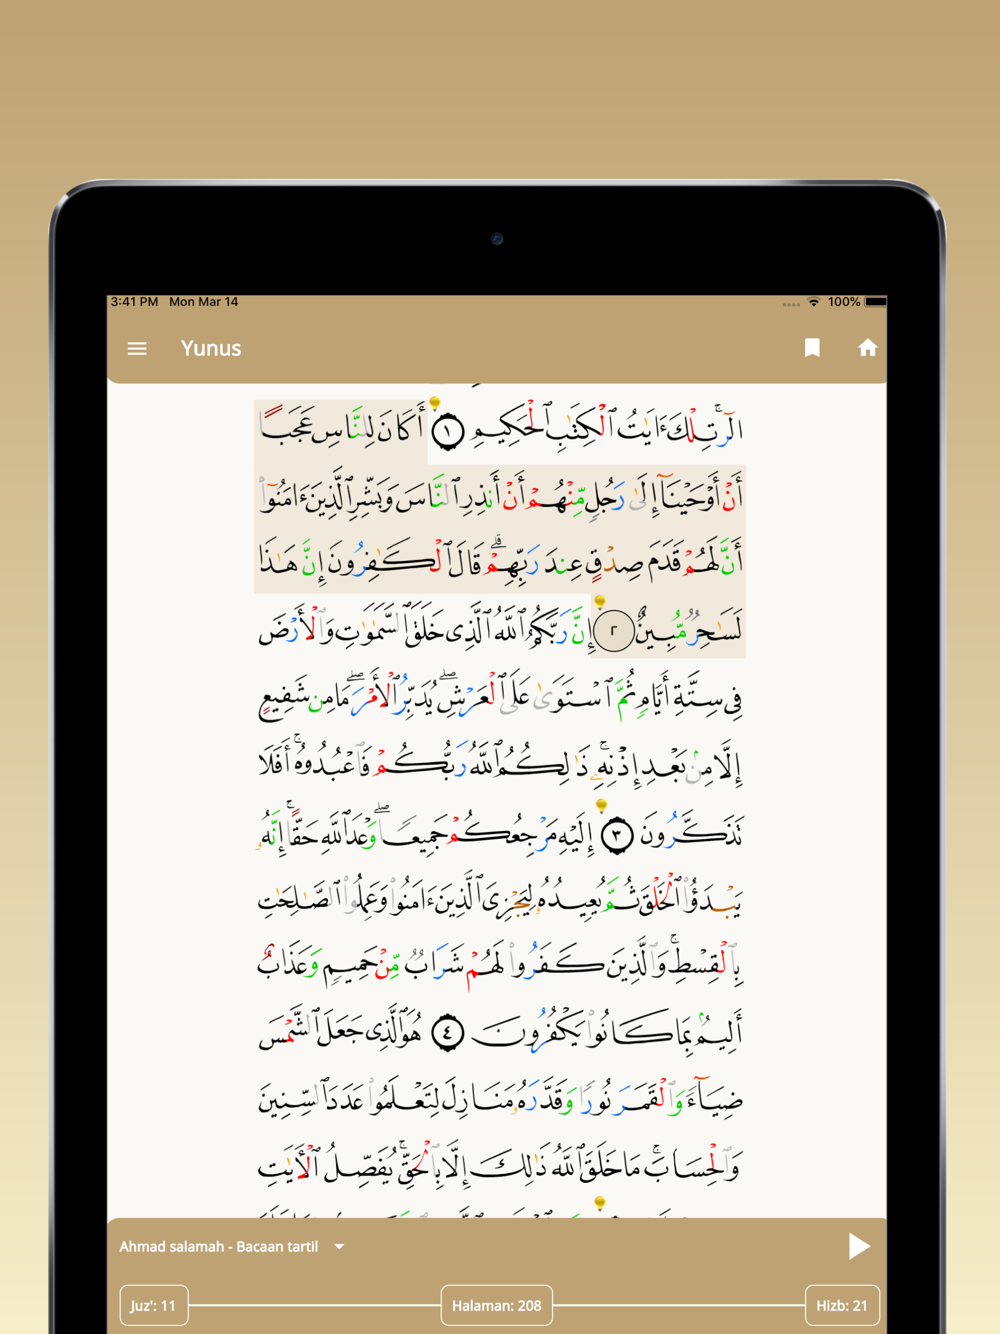 3:41 PM Mon Mar 14 100%
Yunus
الٓرۚ تِلۡكَ ءَايَٰتُ ٱلۡكِتَٰبِ ٱلۡحَكِيمِ ١ أَكَانَ لِلنَّاسِ عَجَبًا
أَنۡ أَوۡحَيۡنَآ إِلَىٰ رَجُلٖ مِّنۡهُمۡ أَنۡ أَنذِرِ ٱلنَّاسَ وَبَشِّرِ ٱلَّذِينَ ءَامَنُوٓاْ
أَنَّ لَهُمۡ قَدَمَ صِدۡقٍ عِندَ رَبِّهِمۡۗ قَالَ ٱلۡكَٰفِرُونَ إِنَّ هَٰذَا
لَسَٰحِرٞ مُّبِينٌ ٢ إِنَّ رَبَّكُمُ ٱللَّهُ ٱلَّذِي خَلَقَ ٱلسَّمَٰوَٰتِ وَٱلۡأَرۡضَ
فِي سِتَّةِ أَيَّامٖ ثُمَّ ٱسۡتَوَىٰ عَلَى ٱلۡعَرۡشِۖ يُدَبِّرُ ٱلۡأَمۡرَۖ مَا مِن شَفِيعٍ
إِلَّا مِنۢ بَعۡدِ إِذۡنِهِۦۚ ذَٰلِكُمُ ٱللَّهُ رَبُّكُمۡ فَٱعۡبُدُوهُۚ أَفَلَا
تَذَكَّرُونَ ٣ إِلَيۡهِ مَرۡجِعُكُمۡ جَمِيعٗاۖ وَعۡدَ ٱللَّهِ حَقًّاۚ إِنَّهُۥ
يَبۡدَؤُاْ ٱلۡخَلۡقَ ثُمَّ يُعِيدُهُۥ لِيَجۡزِيَ ٱلَّذِينَ ءَامَنُواْ وَعَمِلُواْ ٱلصَّٰلِحَٰتِ
بِٱلۡقِسۡطِۚ وَٱلَّذِينَ كَفَرُواْ لَهُمۡ شَرَابٞ مِّنۡ حَمِيمٖ وَعَذَابٌ
أَلِيمُۢ بِمَا كَانُواْ يَكۡفُرُونَ ٤ هُوَ ٱلَّذِي جَعَلَ ٱلشَّمۡسَ
ضِيَآءٗ وَٱلۡقَمَرَ نُورٗا وَقَدَّرَهُۥ مَنَازِلَ لِتَعۡلَمُواْ عَدَدَ ٱلسِّنِينَ
وَٱلۡحِسَابَۚ مَا خَلَقَ ٱللَّهُ ذَٰلِكَ إِلَّا بِٱلۡحَقِّۚ يُفَصِّلُ ٱلۡأٓيَٰتِ
Ahmad salamah - Bacaan tartil
Juz': 11 Halaman: 208 Hizb: 21